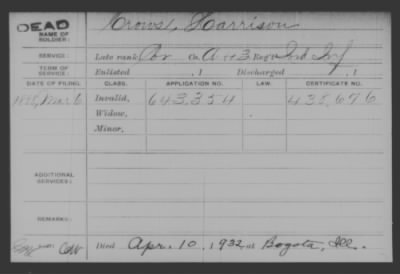 DEAD
NAME OF SOLDIER: Crowst, Harrison
SERVICE: Late rank, Co. A + 3 Reg't Ind Inf
TERM OF SERVICE: Enlisted , 1 Discharged , 1
DATE OF FILING. CLASS. APPLICATION NO. LAW. CERTIFICATE NO.
Mar 6 Invalid, 643,354 435,676
Widow,
Minor,
ADDITIONAL SERVICES:
REMARKS:
Died Apr. 10, 1932, at Bogota, Ill.